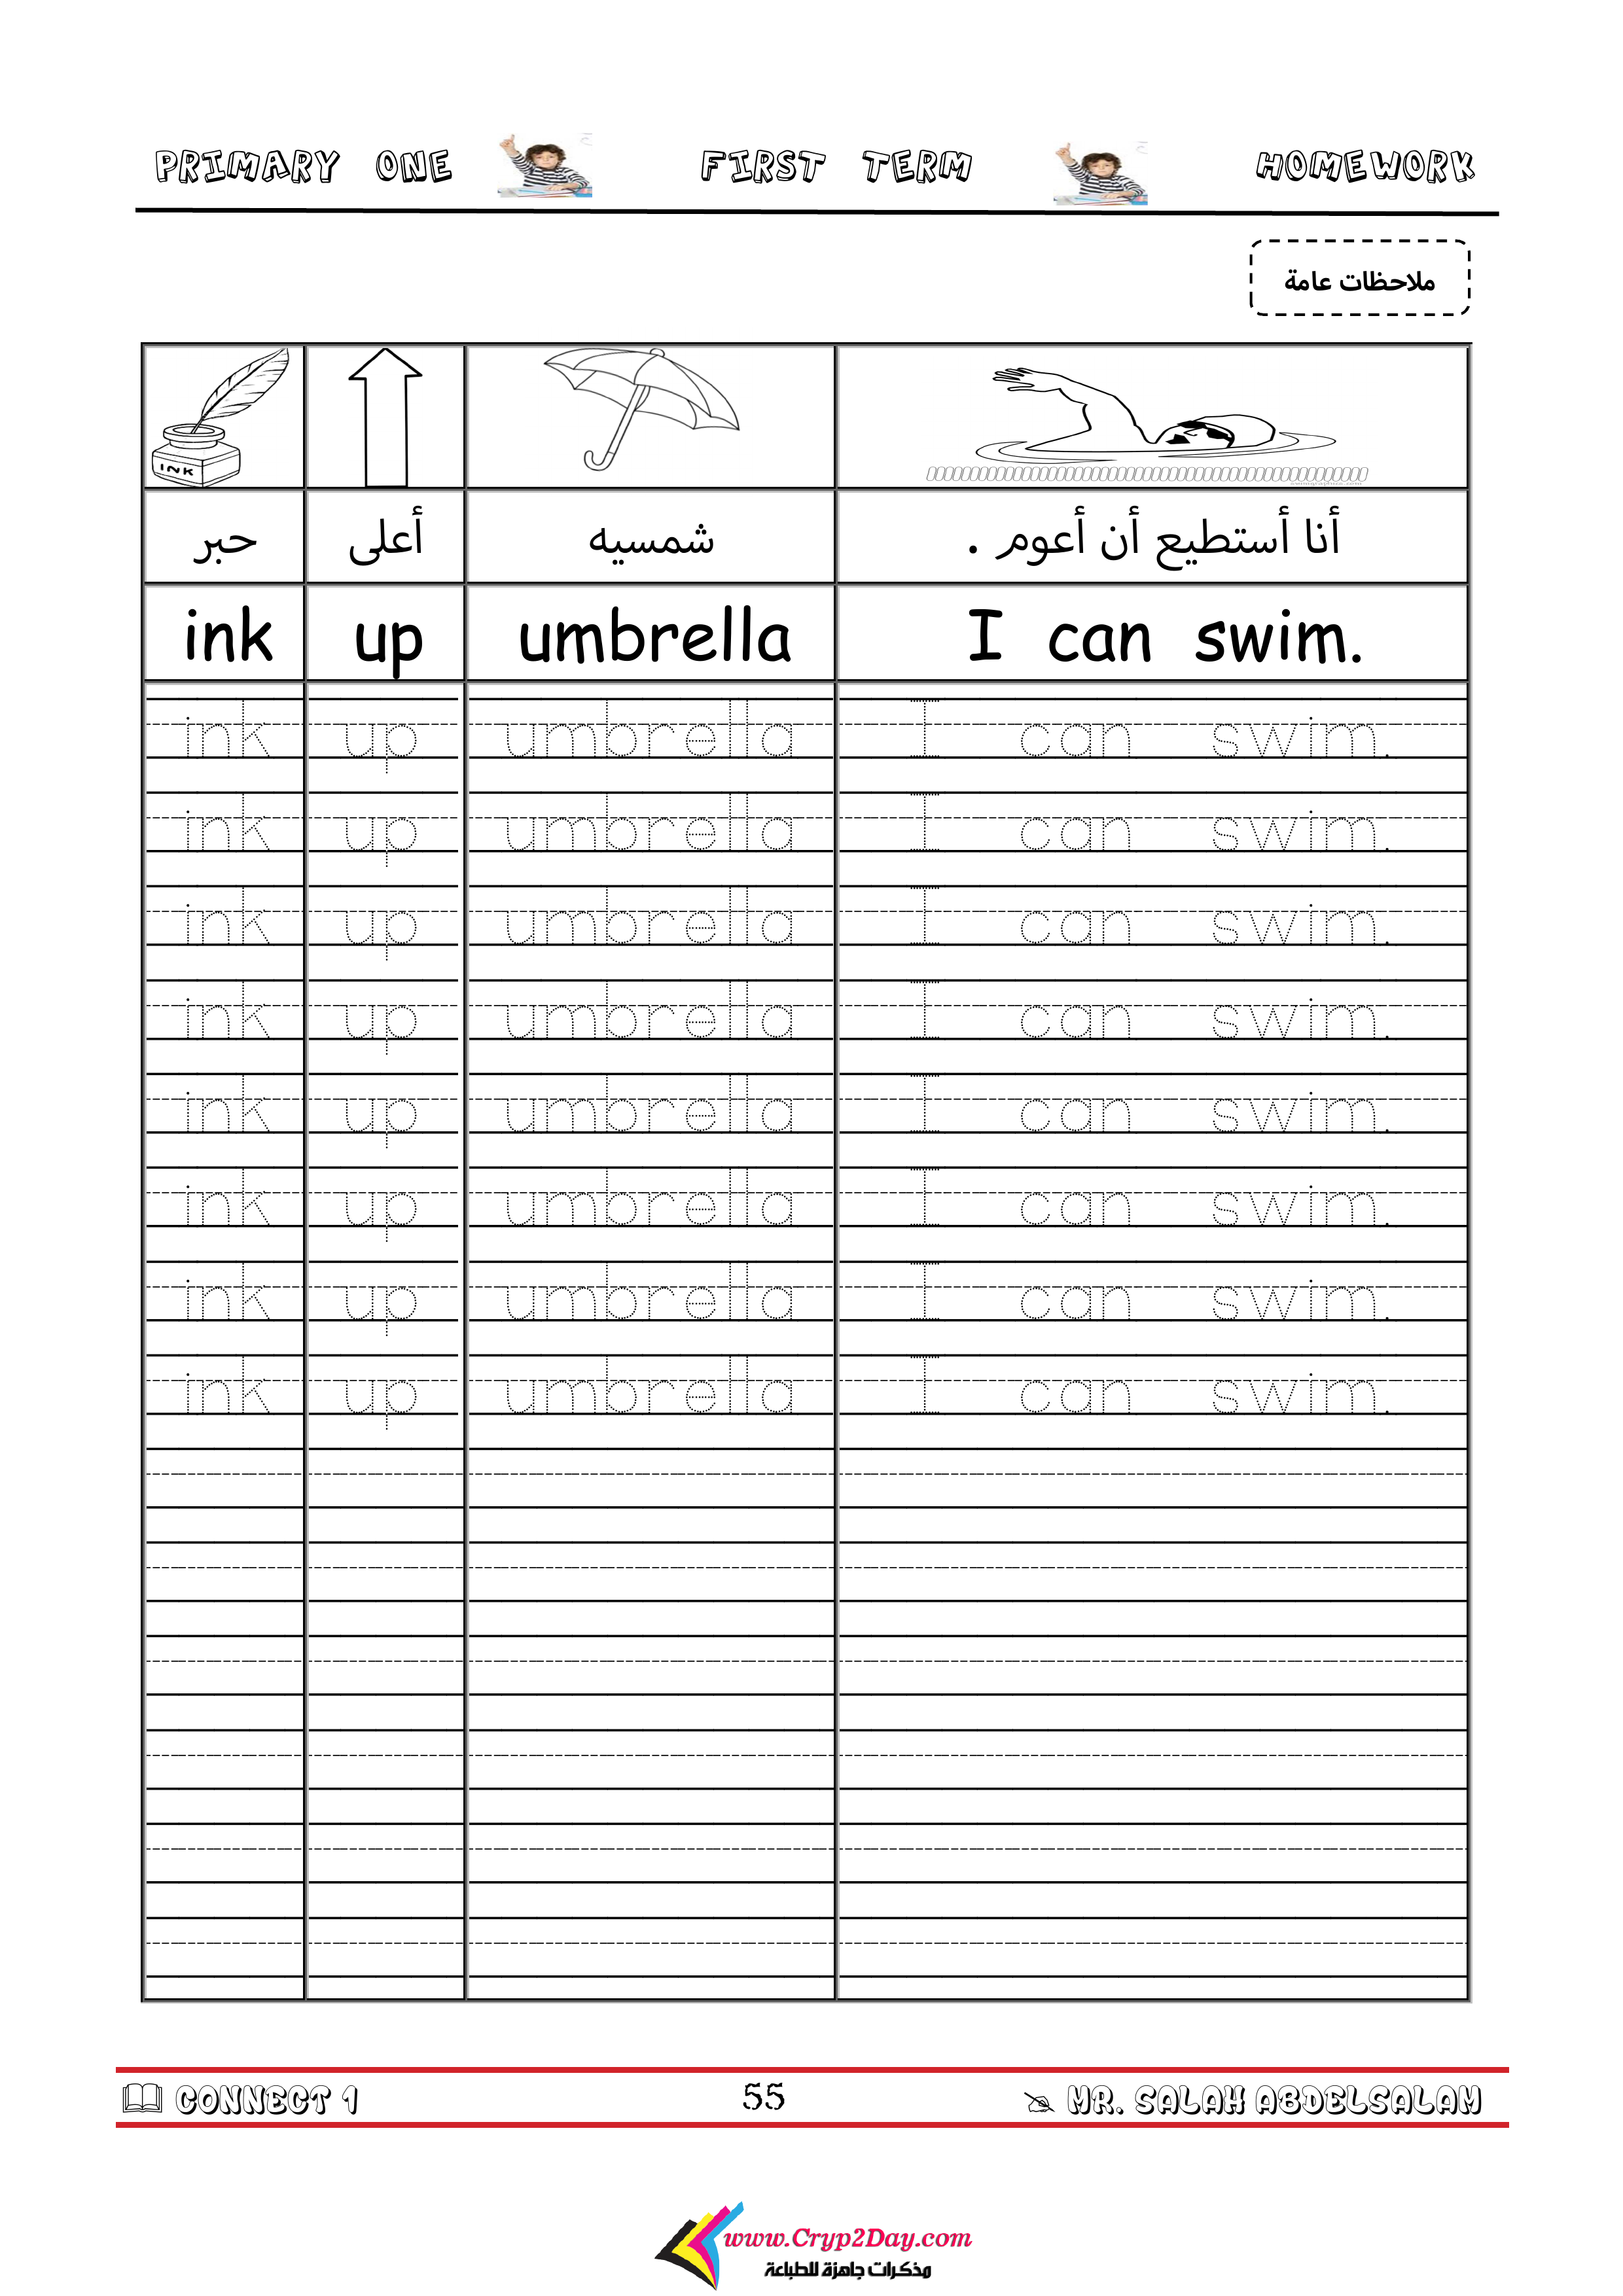 PRIMARY ONE FIRST TERM HOMEWORK
ملاحظات عامة
INK
حبر أعلى شمسيه أنا أستطيع أن أعوم .
ink up umbrella I can swim.
ink up umbrella I can swim.
ink up umbrella I can swim.
ink up umbrella I can swim.
ink up umbrella I can swim.
ink up umbrella I can swim.
ink up umbrella I can swim.
ink up umbrella I can swim.
ink up umbrella I can swim.
CONNECT 1 55 MR. SALAH ABDELSALAM
www.Cryp2Day.com
مذكرات جاهزة للطباعة